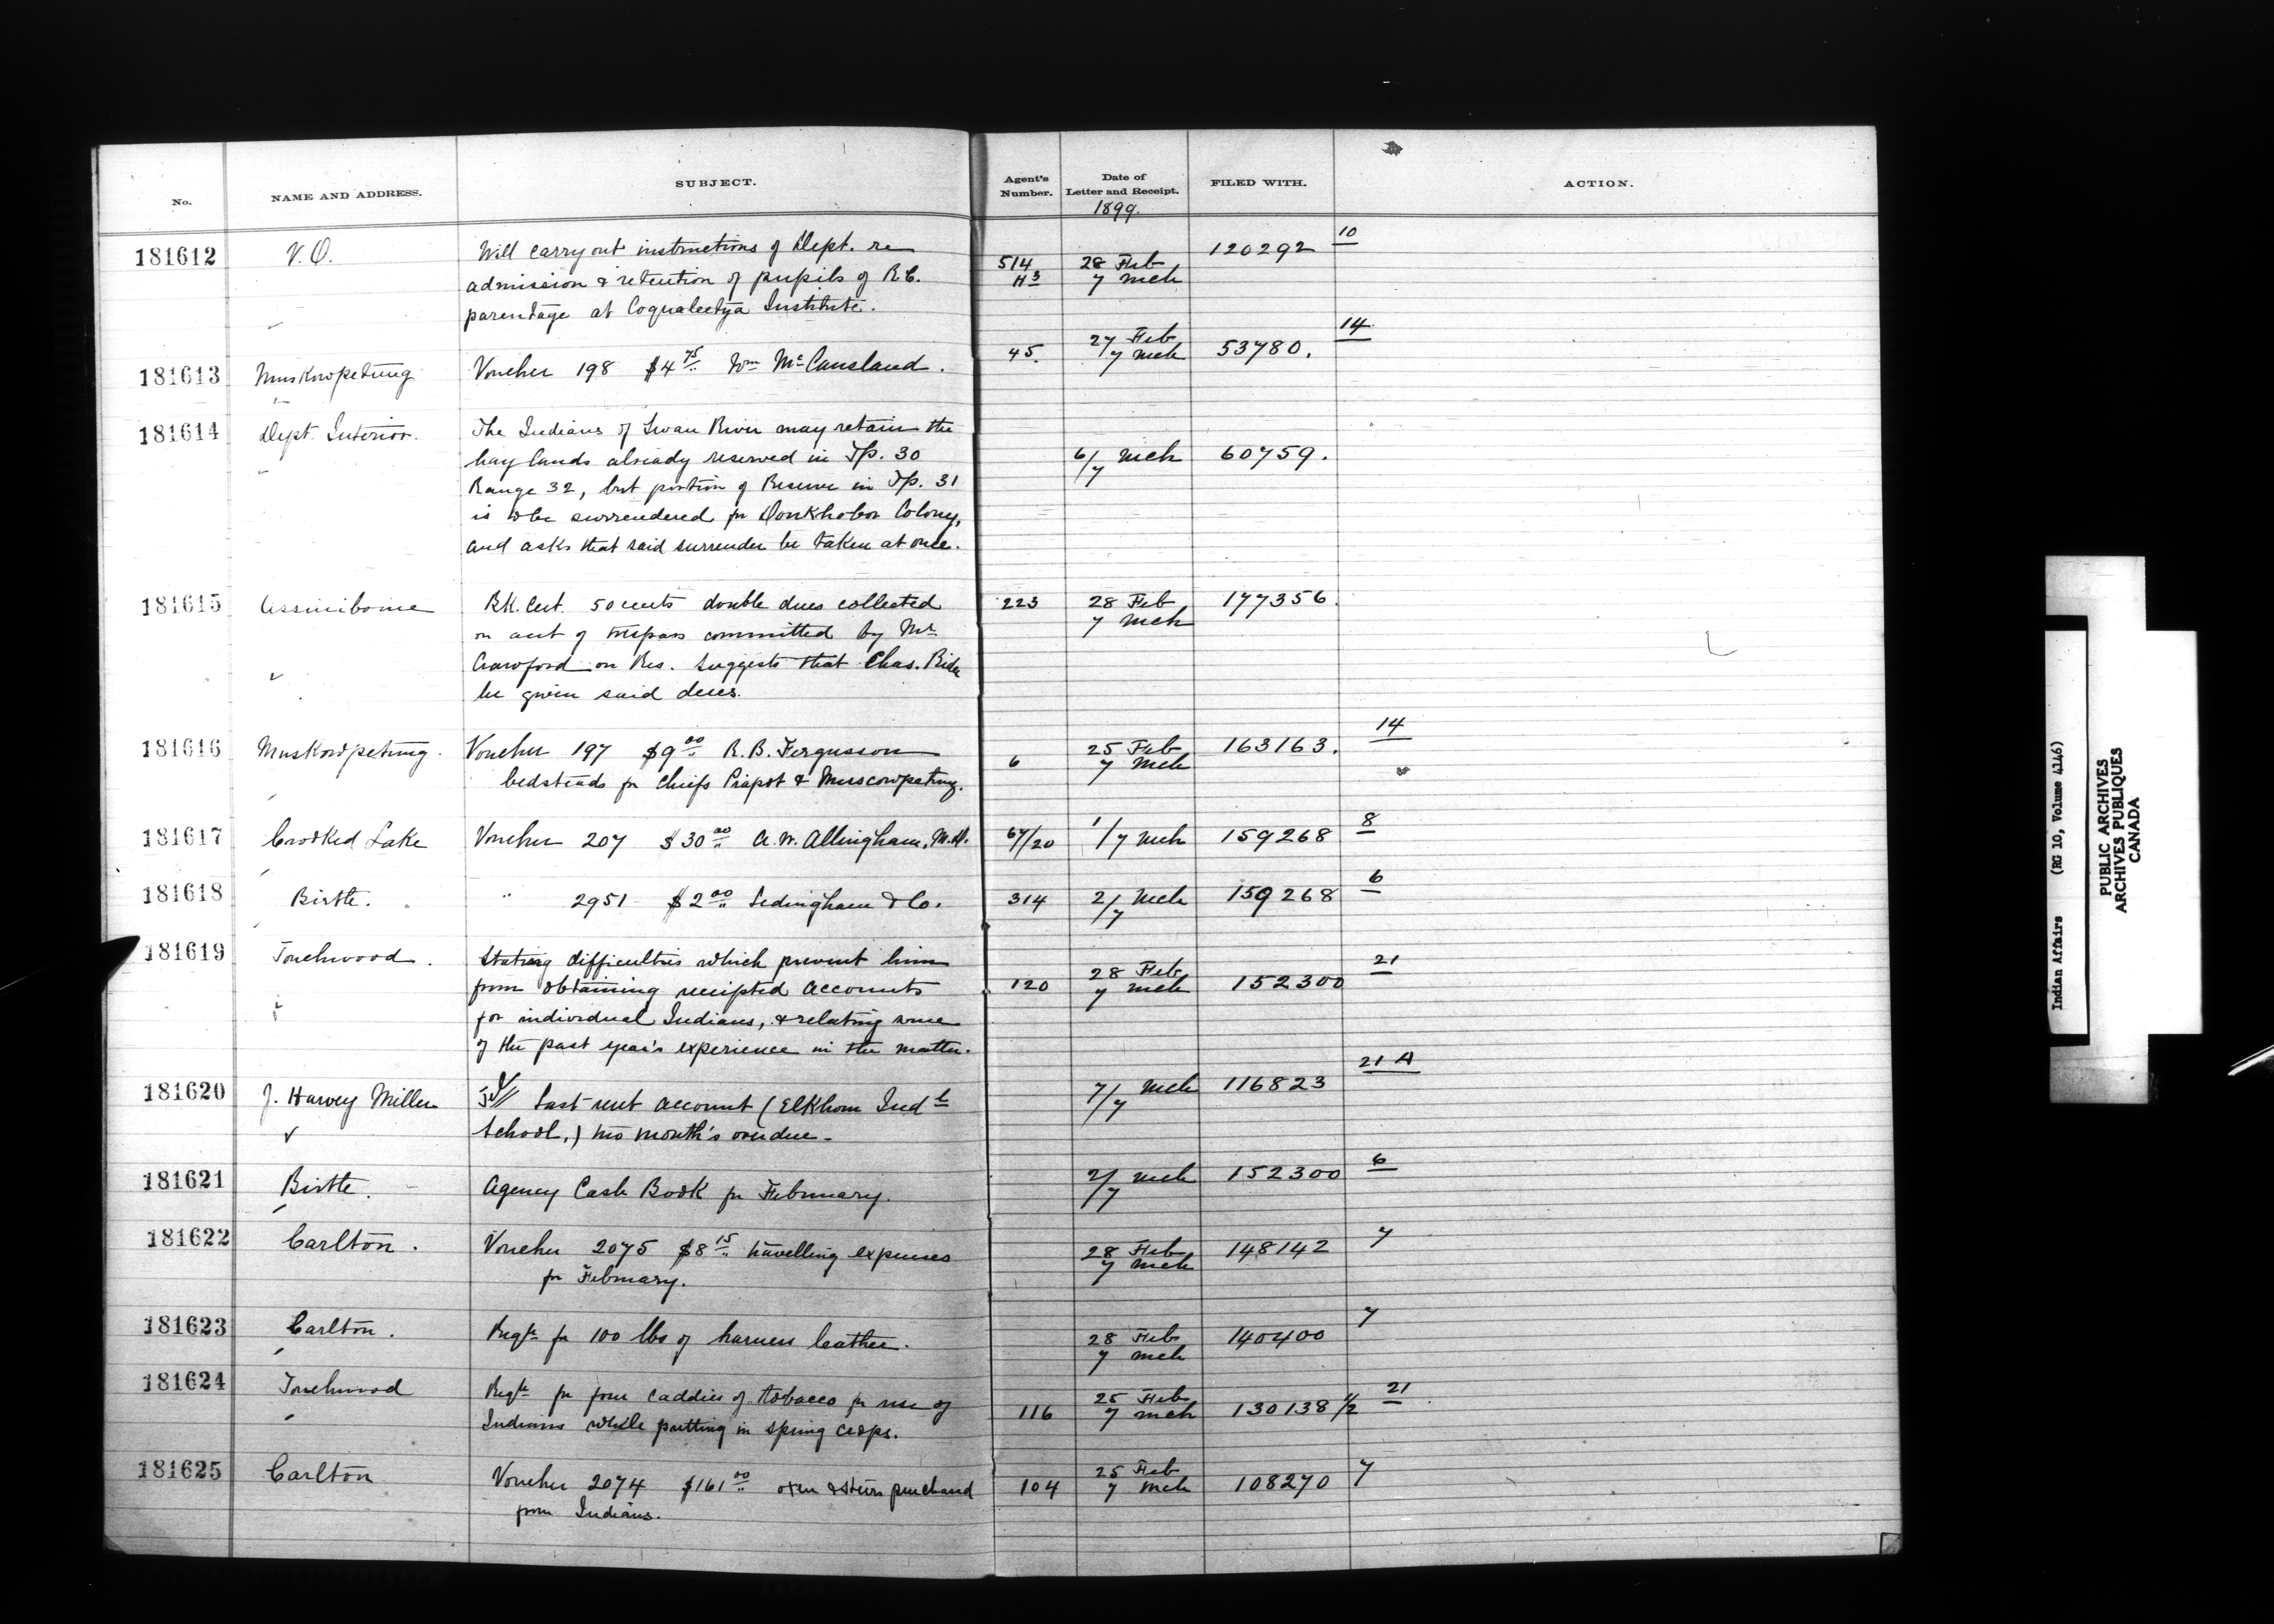 No. NAME AND ADDRESS. SUBJECT. Agent's Number. Date of Letter and Receipt. FILED WITH. ACTION.
1899.
181612 V.O. Will carry out instructions of Dept. re 514 28 Feb 120292 10
admission & retention of pupils of R.C. H3 7 Mch
parentage at Coqualeetya Institute.
181613 Muskowpetung Voucher 198 $4 75 Wm McCausland. 45. 27 Feb 7 Mch 53780. 14
181614 Dept. Interior. The Indians of Swan River may retain the
hay lands already reserved in Tp. 30 6/7 Mch 60759.
Range 32, but portion of Reserve in Tp. 31
is to be surrendered for Doukhobor Colony,
and asks that said surrender be taken at once.
181615 Assiniboine BK. Cert. 50 cents double dues collected 223 28 Feb 177356.
on acct of trespass committed by Mr 7 Mch
Crawford on Res. Suggests that Chas. Rider
be given said dues.
181616 Muskowpetung. Voucher 197 $9 00 R.B. Fergusson 6 25 Feb 163163. 14
bedsteads for Chiefs Piapot & Muscowpetung. 7 Mch
181617 Crooked Lake Voucher 207 $30 00 A.W. Allingham, M.D. 67/20 1/7 Mch 159268 8
181618 Birtle. " 2951 $2 00 Ledingham & Co. 314 2/7 Mch 159268 6
181619 Touchwood. Stating difficulties which prevent him 28 Feb 21
from obtaining receipted accounts 120 7 Mch 152300
for individual Indians, & relating some
of the past year's experience in the matter.
181620 J. Harvey Miller Last rent account (Elkhorn Indl 7/7 Mch 116823 21 A
School,) two month's overdue.
181621 Birtle. Agency Cash Book for February. 2/7 Mch 152300 6
181622 Carlton. Voucher 2075 $8 15 travelling expenses 28 Feb 148142 7
for February. 7 Mch
181623 Carlton. Reqn for 100 lbs of harness leather. 28 Feb 7 Mch 140400 7
181624 Touchwood Reqn for four caddies of tobacco for use of 116 25 Feb 130138 1/2 21
Indians while putting in spring crops. 7 Mch
181625 Carlton Voucher 2074 $161 00 oxen & steers purchased 104 25 Feb 7 Mch 108270 7
from Indians.
Indian Affairs (RG 10, Volume 4146)
PUBLIC ARCHIVES
ARCHIVES PUBLIQUES
CANADA